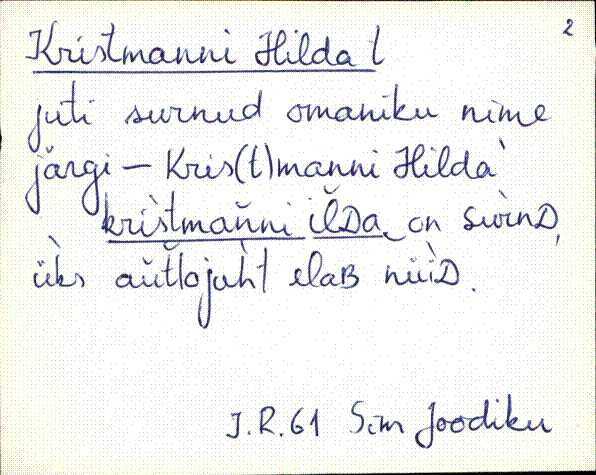 2
Kristmanni Hilda t
juti surnud omaniku nime
järgi – Kris(t)manni Hilda
krìstmañni iľDa on sùrnD,
ǜks aŭtlojùht elaB nǜiD.
J.R.61 Sim Joodiku